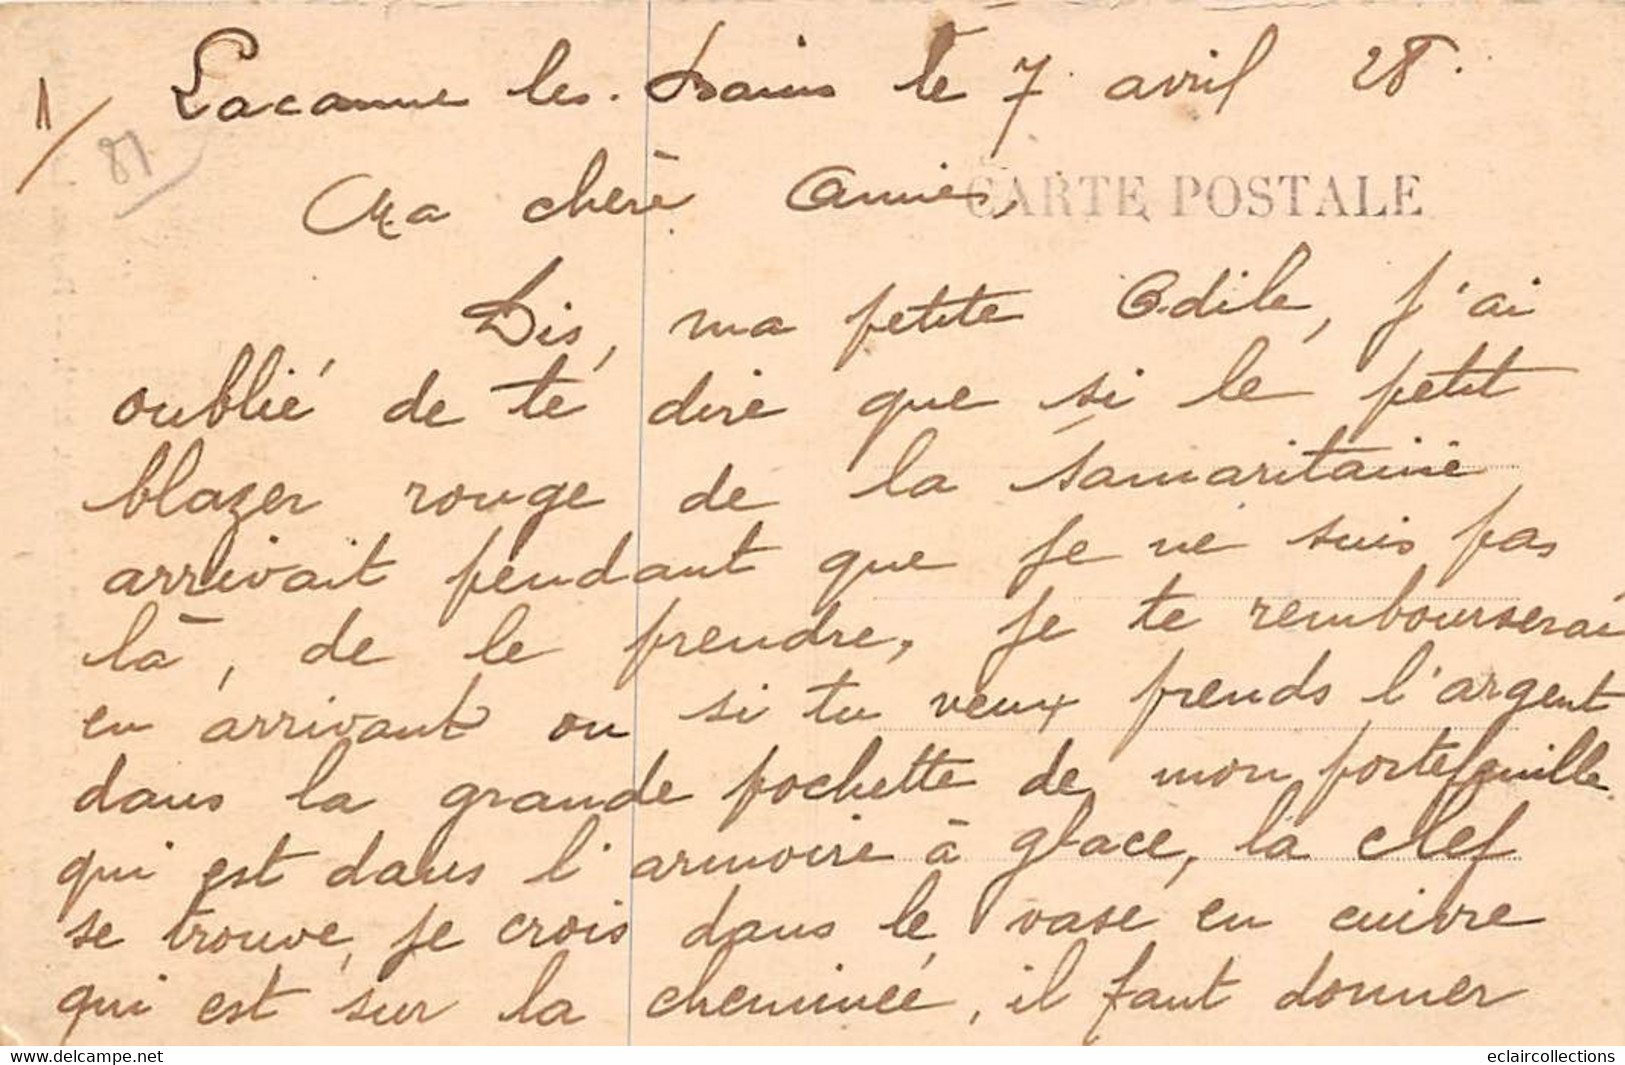 1/
81
Lacaune les Bains le 7 avril 28.
CARTE POSTALE
Ma chère Annie,
Dis, ma petite Odile, j'ai
oublié de te dire que si le petit
blazer rouge de la Samaritaine
arrivait pendant que je ne suis pas
là, de le prendre, je te rembourserai
en arrivant ou si tu veux prends l'argent
dans la grande pochette de mon portefeuille
qui est dans l'armoire à glace, la clef
se trouve, je crois dans le vase en cuivre
qui est sur la cheminée, il faut donner
www.delcampe.net
eclaircollections